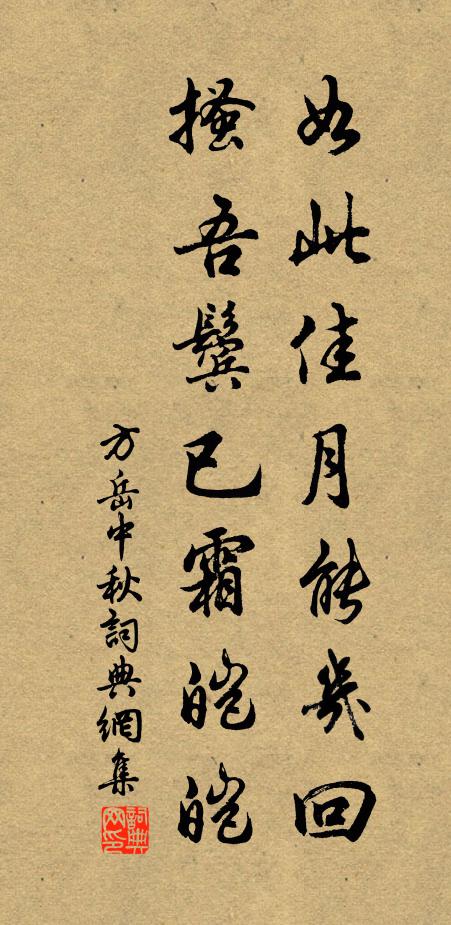 如此佳月能幾回
搔吾鬢已霜皚皚
方岳中秋詞典網集
詞典網印